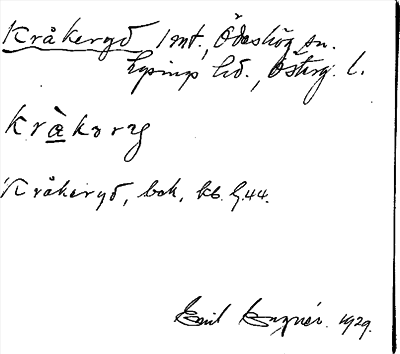 Kråkeryd 1 mt., Ödeshög sn.
Lysings hd., Österg. l.
kråkorg
Kråkeryd, bok, kb. G.44.
Emil 1929.